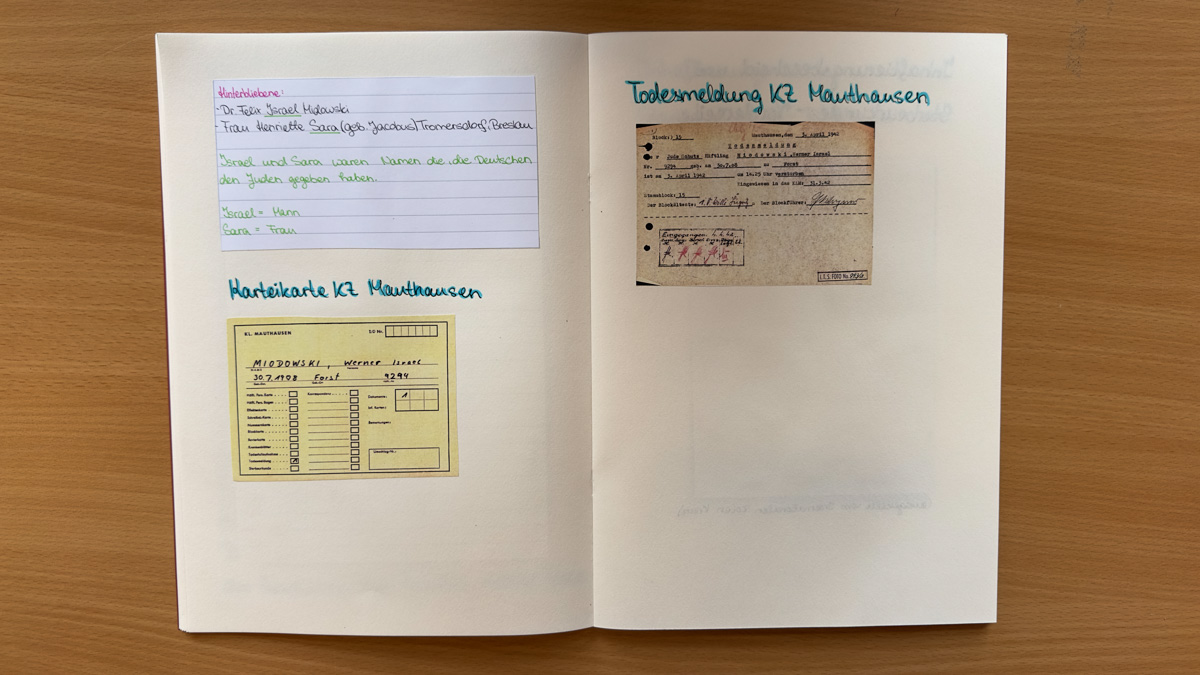 Hinterbliebene:
- Dr. Felix Israel Miodowski
- Frau Henriette Sara (geb. Jacobus) Tromersdorf, Breslau
Israel und Sara waren Namen die, die Deutschen
den Juden gegeben haben.
Israel = Mann
Sara = Frau
Karteikarte KZ Mauthausen
KL. MAUTHAUSEN
MIODOWSKI, Werner Israel
30.7.1908 Forst 9294
Korrespondenz
Dokumente: 1
Inf. Karten:
Bemerkungen:
Todesmeldung
Sterbeurkunde
Umschlag-Nr.:
Todesmeldung KZ Mauthausen
Block: 15 Mauthausen, den 3. April 1942
Todesmeldung
Jude Schutz Häftling Miodowski, Werner Israel
Nr. 9294 geb. am 30.7.08 zu Forst
ist am 3. April 1942 um 10.25 Uhr verstorben
Eingewiesen in das KLM: 31.3.42
Stammblock: 15
Der Blockälteste: Der Blockführer:
Eingegangen:
I.T.S. FOTO No.